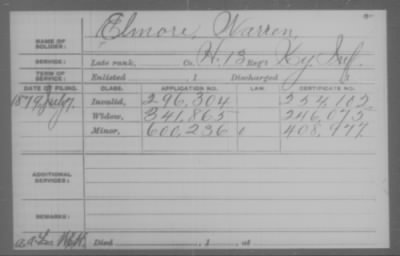 NAME OF SOLDIER: Elmore, Warren
SERVICE: Late rank, Co. H, 13 Reg't Ky Inf.
TERM OF SERVICE: Enlisted , 1 Discharged , 1
DATE OF FILING. CLASS. APPLICATION NO. LAW. CERTIFICATE NO.
1879, July 7. Invalid, 296,304
Widow, 341,865 246,075
Minor, 600,236 408,977
ADDITIONAL SERVICES:
REMARKS:
Died , 1 , at